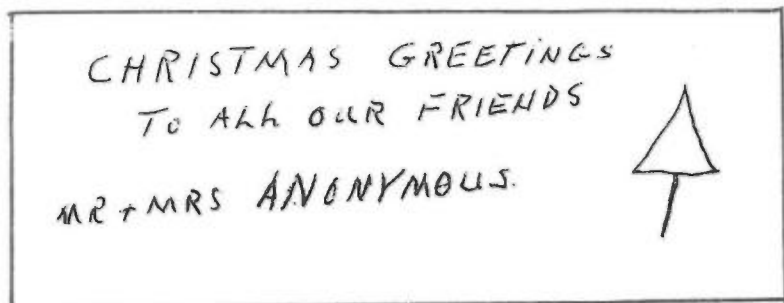 CHRISTMAS GREETINGS
TO ALL OUR FRIENDS
MR + MRS ANONYMOUS.